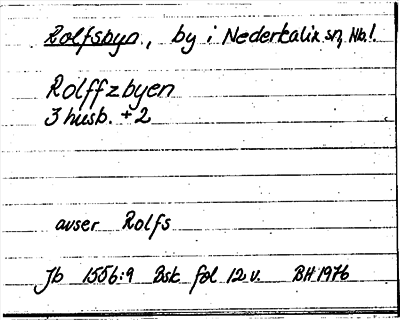 Rolfsbyn, by i Nederkalix sn, Nb l.
Rolffzbyen
3 husb. + 2
avser Rolfs
Jb 1556:9 Bsk fol 12 v. BH 1976